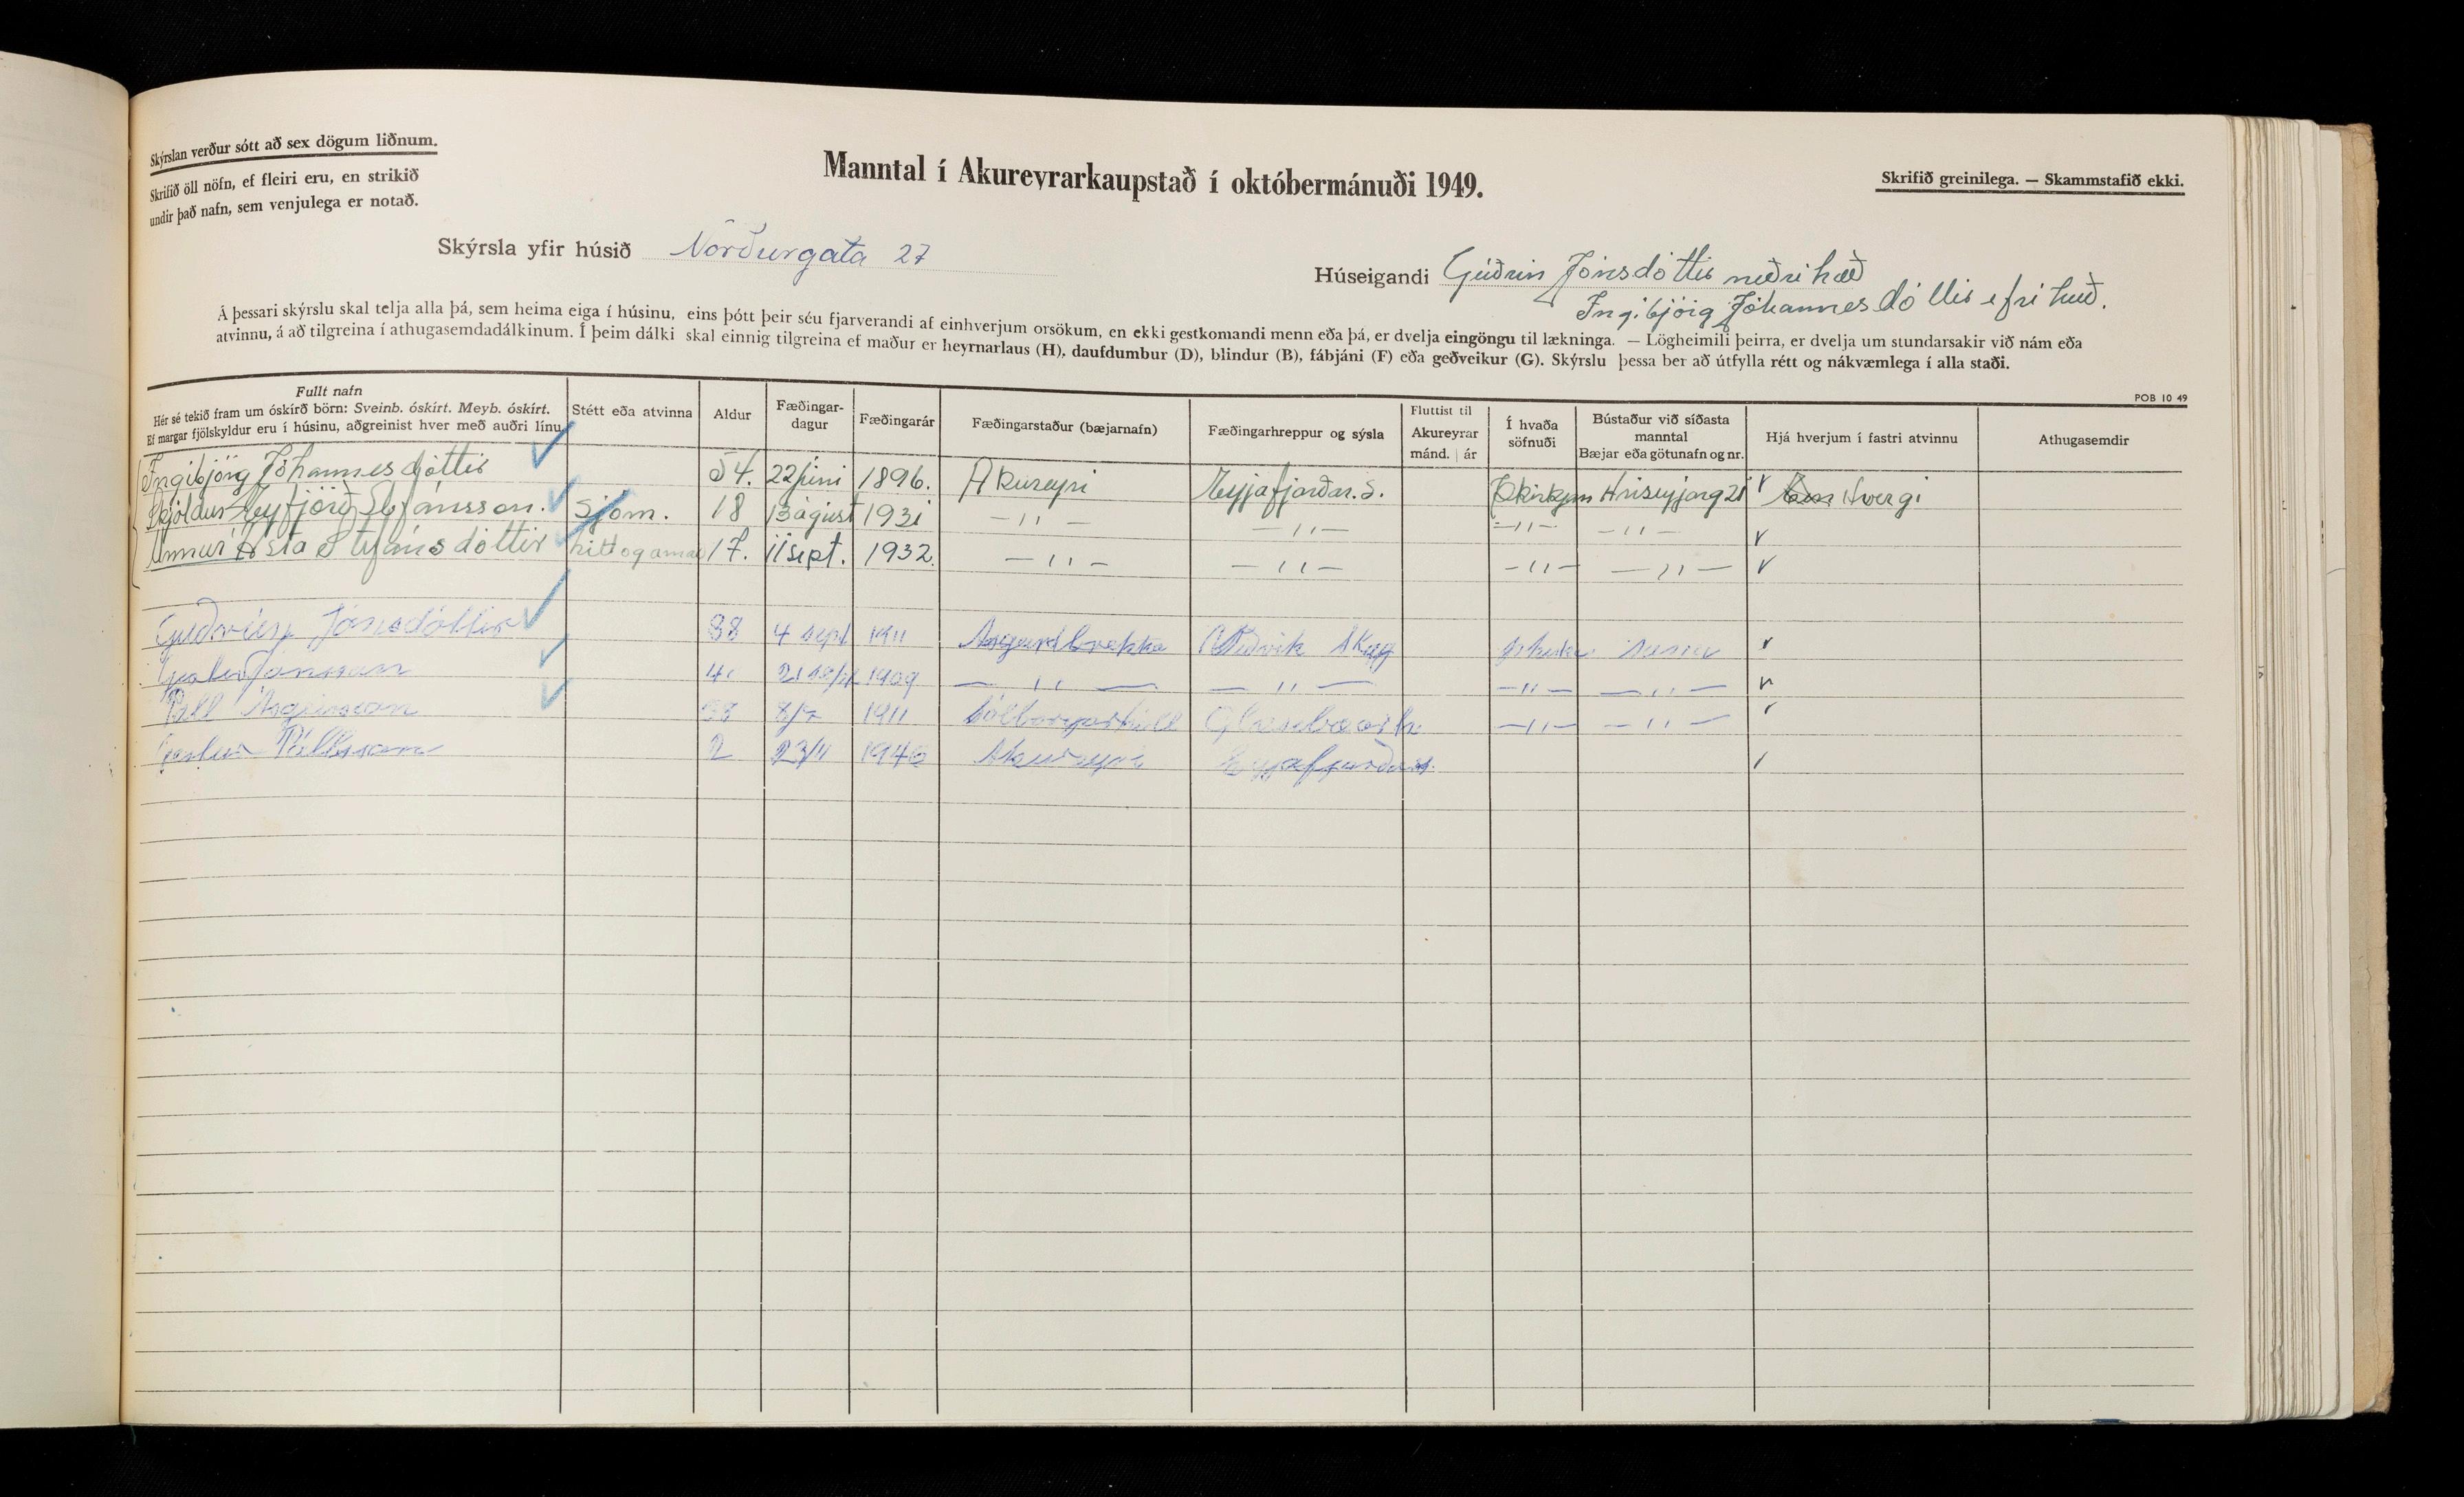 Skýrslan verður sótt að sex dögum liðnum.
Skrifið öll nöfn, ef fleiri eru, en strikið
undir það nafn, sem venjulega er notað.
Manntal í Akureyrarkaupstað í októbermánuði 1949.
Skrifið greinilega. — Skammstafið ekki.
Skýrsla yfir húsið Norðurgata 27
Húseigandi Guðrún Jónsdóttir neðri hæð
Ingibjörg Jóhannesdóttir efri hæð.
Á þessari skýrslu skal telja alla þá, sem heima eiga í húsinu, eins þótt þeir séu fjarverandi af einhverjum orsökum, en ekki gestkomandi menn eða þá, er dvelja eingöngu til lækninga. — Lögheimili þeirra, er dvelja um stundarsakir við nám eða
atvinnu, á að tilgreina í athugasemdadálkinum. Í þeim dálki skal einnig tilgreina ef maður er heyrnarlaus (H), daufdumbur (D), blindur (B), fábjáni (F) eða geðveikur (G). Skýrslu þessa ber að útfylla rétt og nákvæmlega í alla staði.
POB 10 49
Fullt nafn
Hér sé tekið fram um óskírð börn: Sveinb. óskírt. Meyb. óskírt.
Ef margar fjölskyldur eru í húsinu, aðgreinist hver með auðri línu.
Stétt eða atvinna
Aldur
Fæðingar-
dagur
Fæðingarár
Fæðingarstaður (bæjarnafn)
Fæðingarhreppur og sýsla
Fluttist til
Akureyrar
mánd. | ár
Í hvaða
söfnuði
Bústaður við síðasta
manntal
Bæjar eða götunafn og nr.
Hjá hverjum í fastri atvinnu
Athugasemdir
Ingibjörg Jóhannesdóttir 54. 22 júni 1896. Akureyri Eyjafjarðar.s. Hriseyjarg 21 Hvergi
Skjöldur Eyfjörð Stefánsson. Sjóm. 18 13 águst 1931 —〃— —〃— —〃— —〃—
Unnur Ásta Stefánsdóttir 17. 11 sept. 1932. —〃— —〃— —〃— —〃—
Guðrún Jónsdóttir 38 4 sept 1911 Ásgeirsbrekka Viðvik Skag sama
Jónsson 41 21 sept 1909 —〃— —〃— —〃— —〃—
Páll Ásgeirsson 38 8/7 1911 Sólborgarhóll Glæsibæarh. —〃— —〃—
Pállsson 2 23/11 1946 Akureyri Eyjafjarðars.